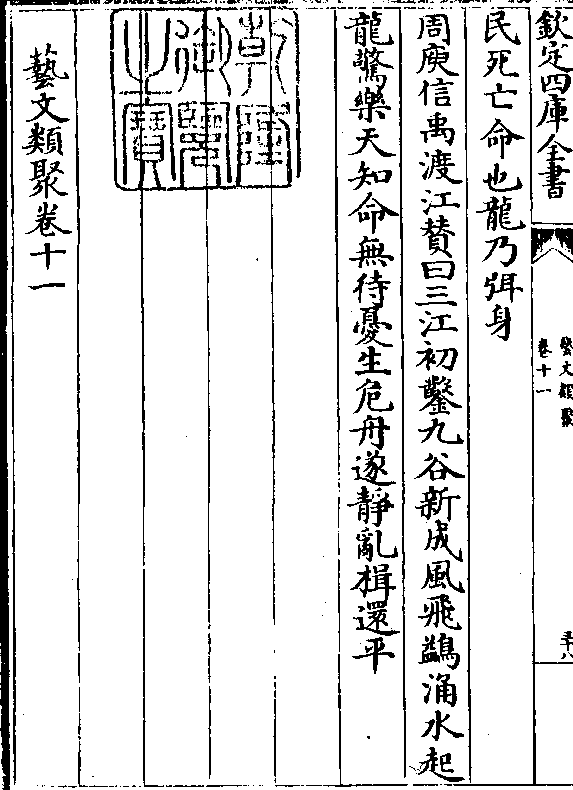 欽定四庫全書
藝文類聚
卷十一
三十八
民死亡命也龍乃弭身
周庾信禹渡江贊曰三江初鑿九谷新成風飛鷁涌水起
龍驚樂天知命無待憂生危舟遂靜亂楫還平
乾隆御覽之寶
藝文類聚卷十一